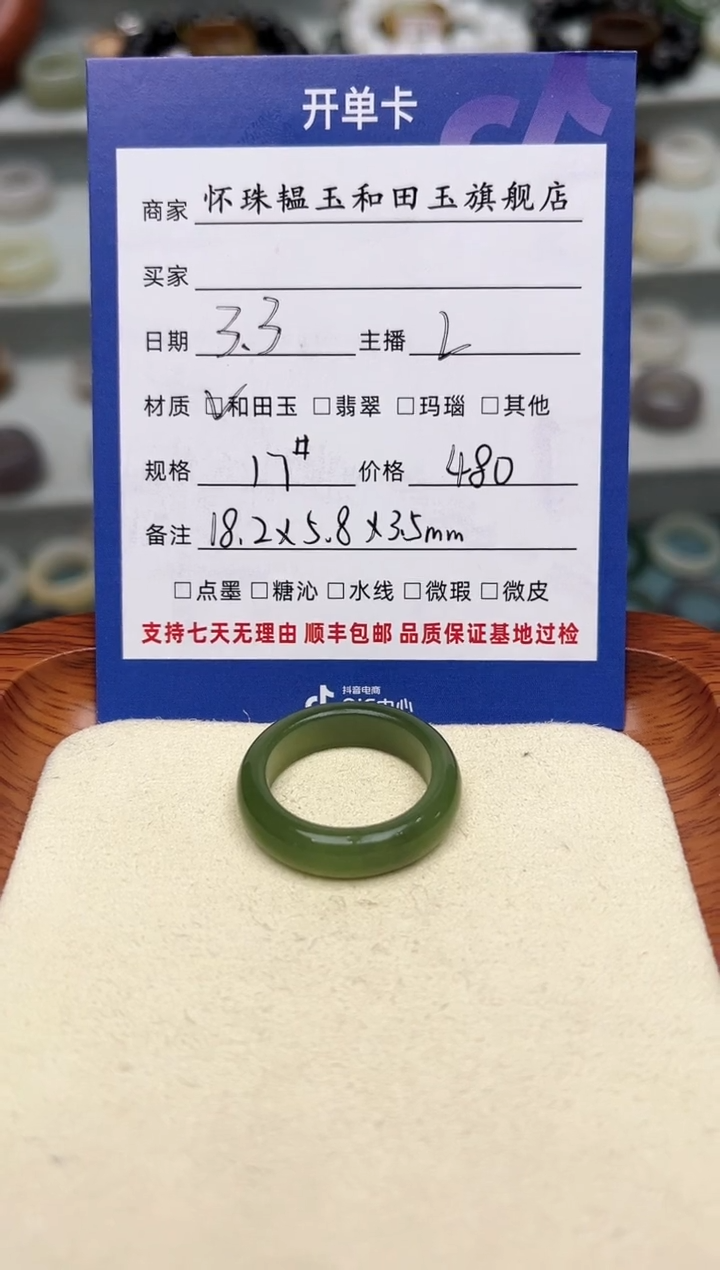 开单卡
商家 怀珠韫玉和田玉旗舰店
买家
日期 3.3 主播 L
材质 ☑和田玉 □翡翠 □玛瑙 □其他
规格 17# 价格 480
备注 18.2×5.8×3.5mm
□点墨 □糖沁 □水线 □微瑕 □微皮
支持七天无理由 顺丰包邮 品质保证基地过检
抖音电商
中心